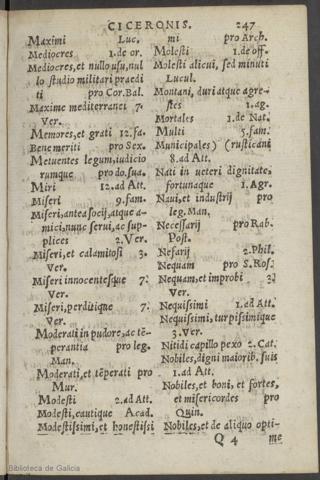 CICERONIS. 247
Maximi Luc.
Mediocres 1.de or.
Mediocres, et nullo usu, nul
lo studio militari praedi
ti pro Cor.Bal.
Maxime mediterranei 7.
Ver.
Memores, et grati 12.fa.
Bene meriti pro Sex.
Metuentes legum, iudicio
rumque pro do.sua.
Miri 12.ad Att.
Miseri 9.fam.
Miseri, antea socij, atque a-
mici, nunc serui, ac sup-
plices 2.Ver.
Miseri, et calamitosi 3.
Ver.
Miseri innocentesque 7.
Ver.
Miseri, perditique 7.
Ver.
Moderati in pudore, ac tē-
perantia pro leg.
Man.
Moderati, et tēperati pro
Mur.
Modesti 2.ad Att.
Modesti, cautique Acad.
Modestissimi, et honestissi
mi pro Arch.
Molesti 1.de off.
Molesti alicui, sed minuti
Lucul.
Montani, duri atque agre-
stes 1.ag.
Mortales 1.de Nat.
Multi 5.fam.
Municipales) (rusticani
8.ad Att.
Nati in ueteri dignitate,
fortunaque 1.Agr.
Naui, et industrij pro
leg.Man.
Necessarij pro Rab.
Post.
Nefarij 2.Phil.
Nequam pro S.Ros.
Nequam, et improbi 3.
Ver.
Nequissimi 1.ad Att.
Nequissimi, turpissimique
3.Ver.
Nitidi capillo pexo 2.Cat.
Nobiles, digni maiorib. suis
1.ad Att.
Nobiles, et boni, et fortes,
et misericordes pro
Quin.
Nobiles, et de aliquo opti-
Q 4 me
Biblioteca de Galicia